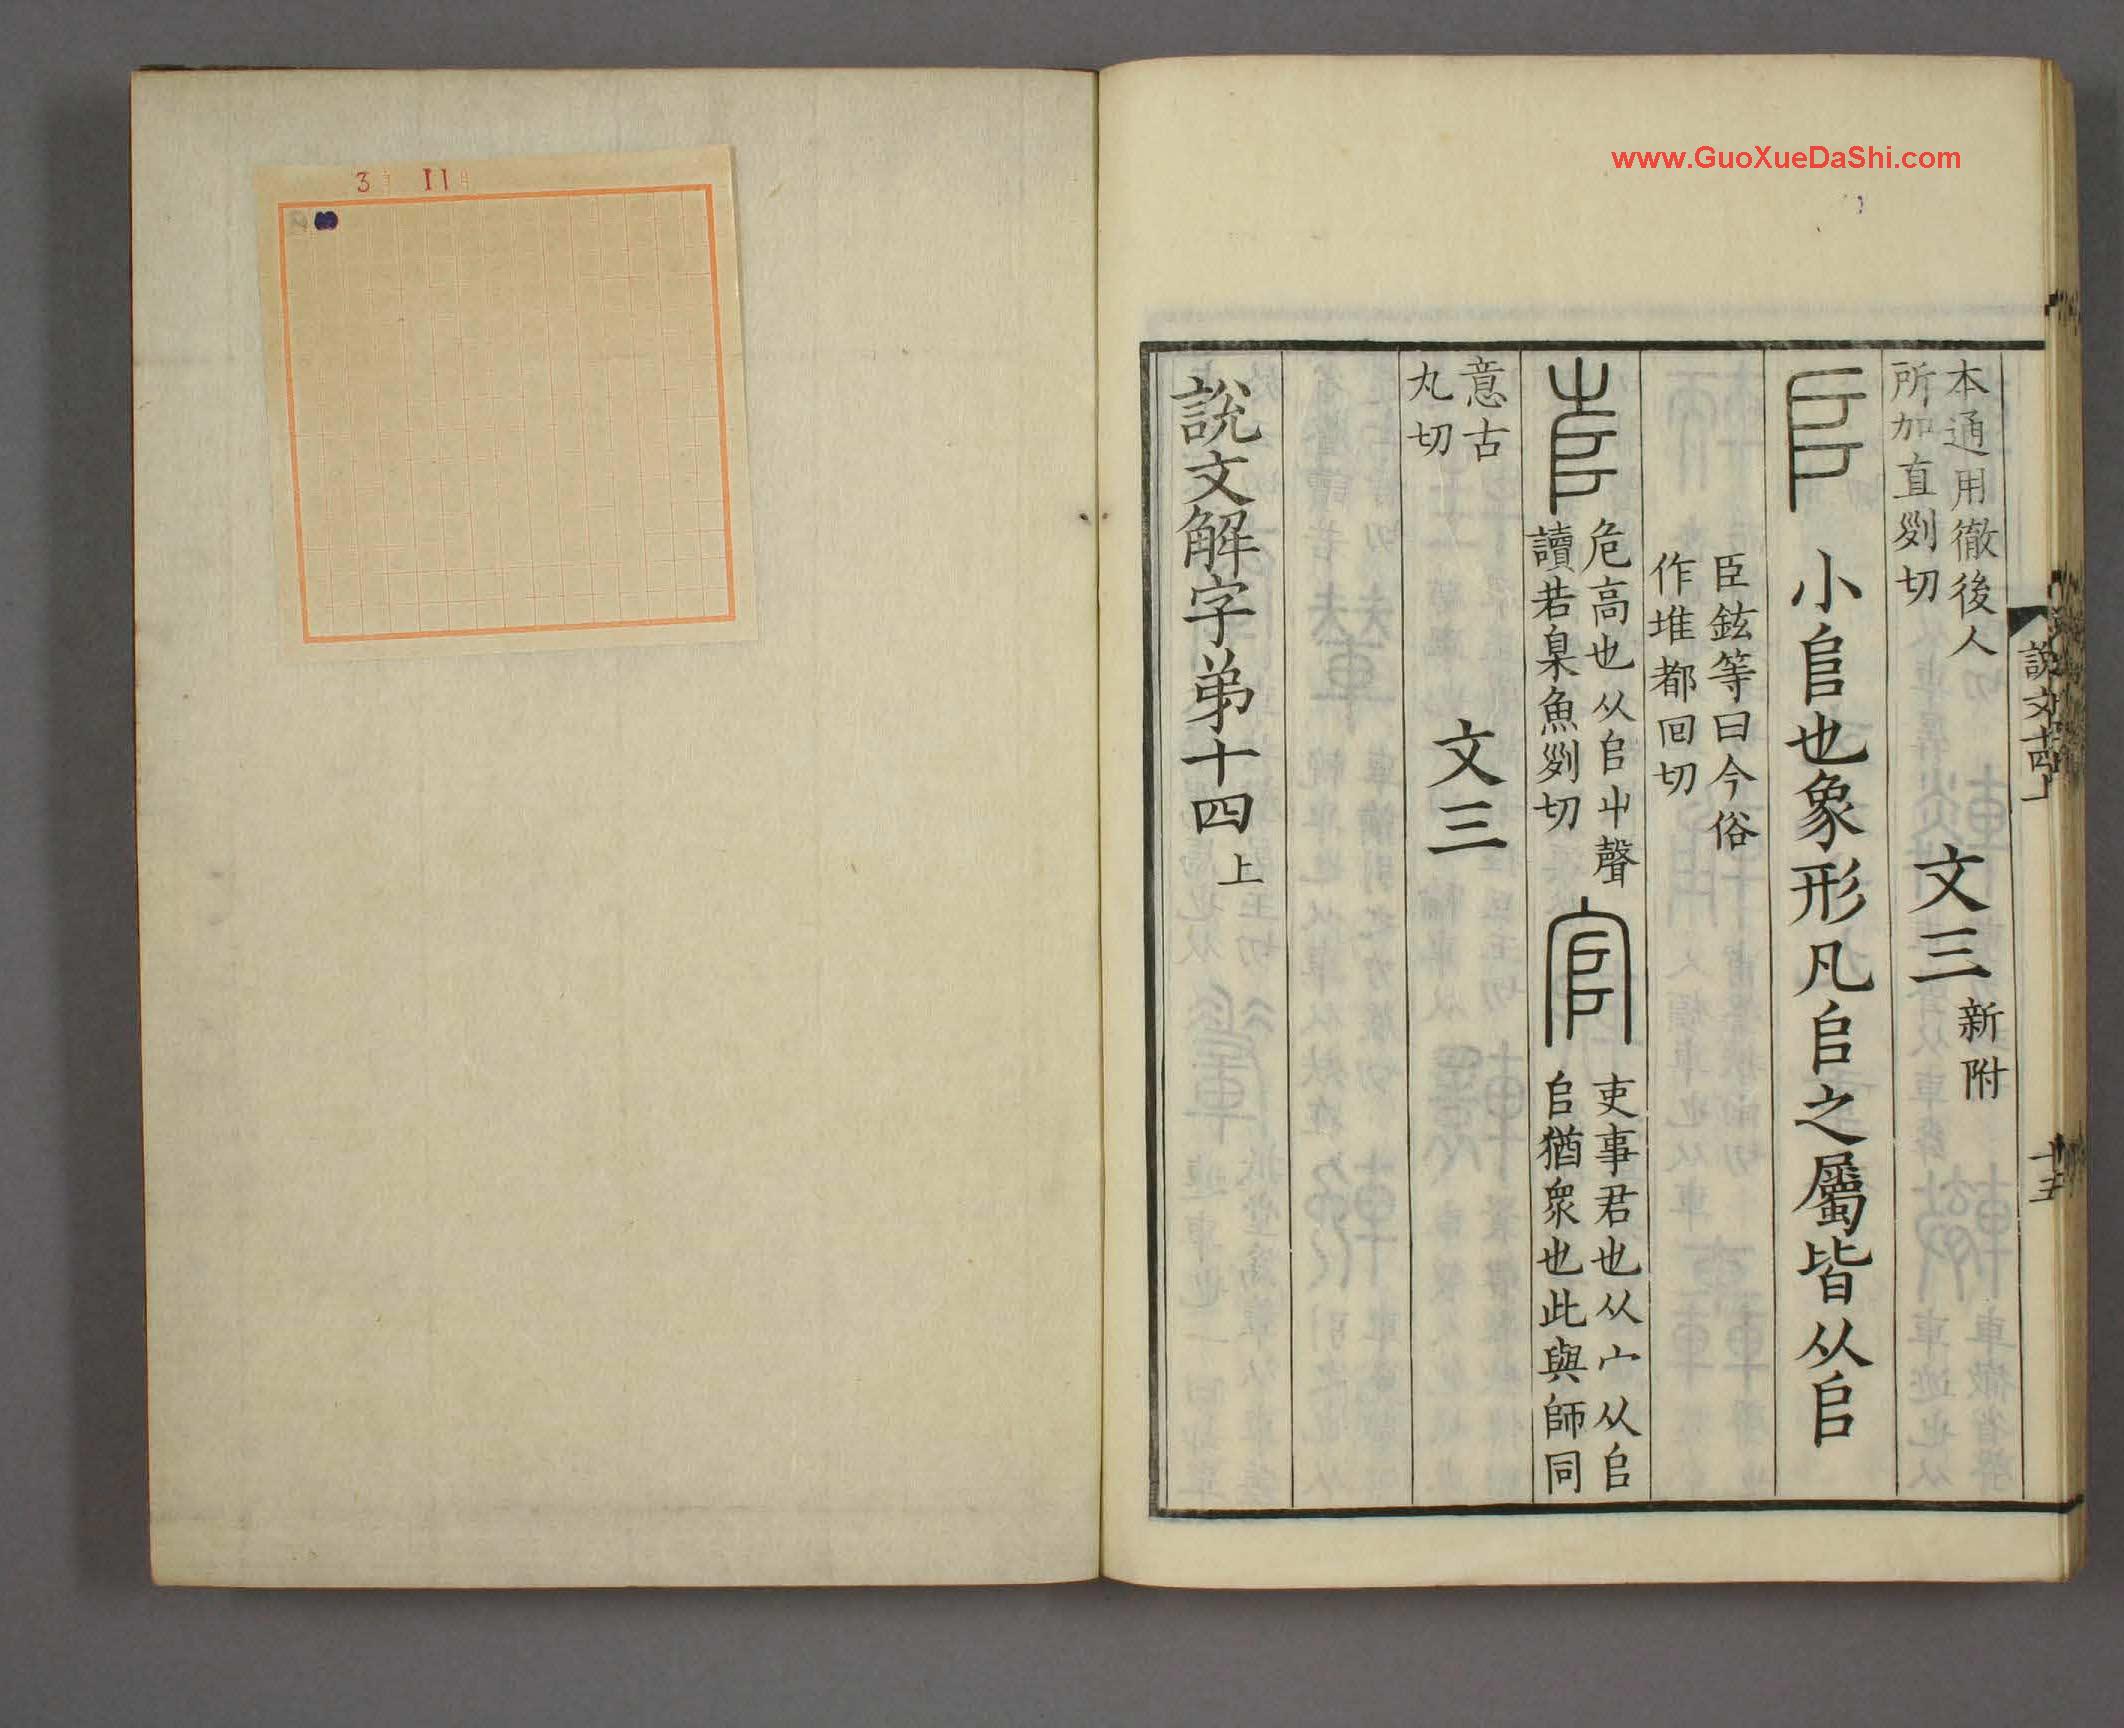 www.GuoXueDaShi.com
3月 11日
本通用徹後人
所加直𠛱切
文三 新附
𠂤 小𠂤也象形凡𠂤之屬皆从𠂤
臣鉉等曰今俗
作堆都回切
𡴎 危高也从𠂤屮聲
讀若臬魚𠛱切
官 吏事君也从宀从𠂤
𠂤猶衆也此與師同
意古
丸切
文三
說文解字弟十四 上
說文十四上
十五